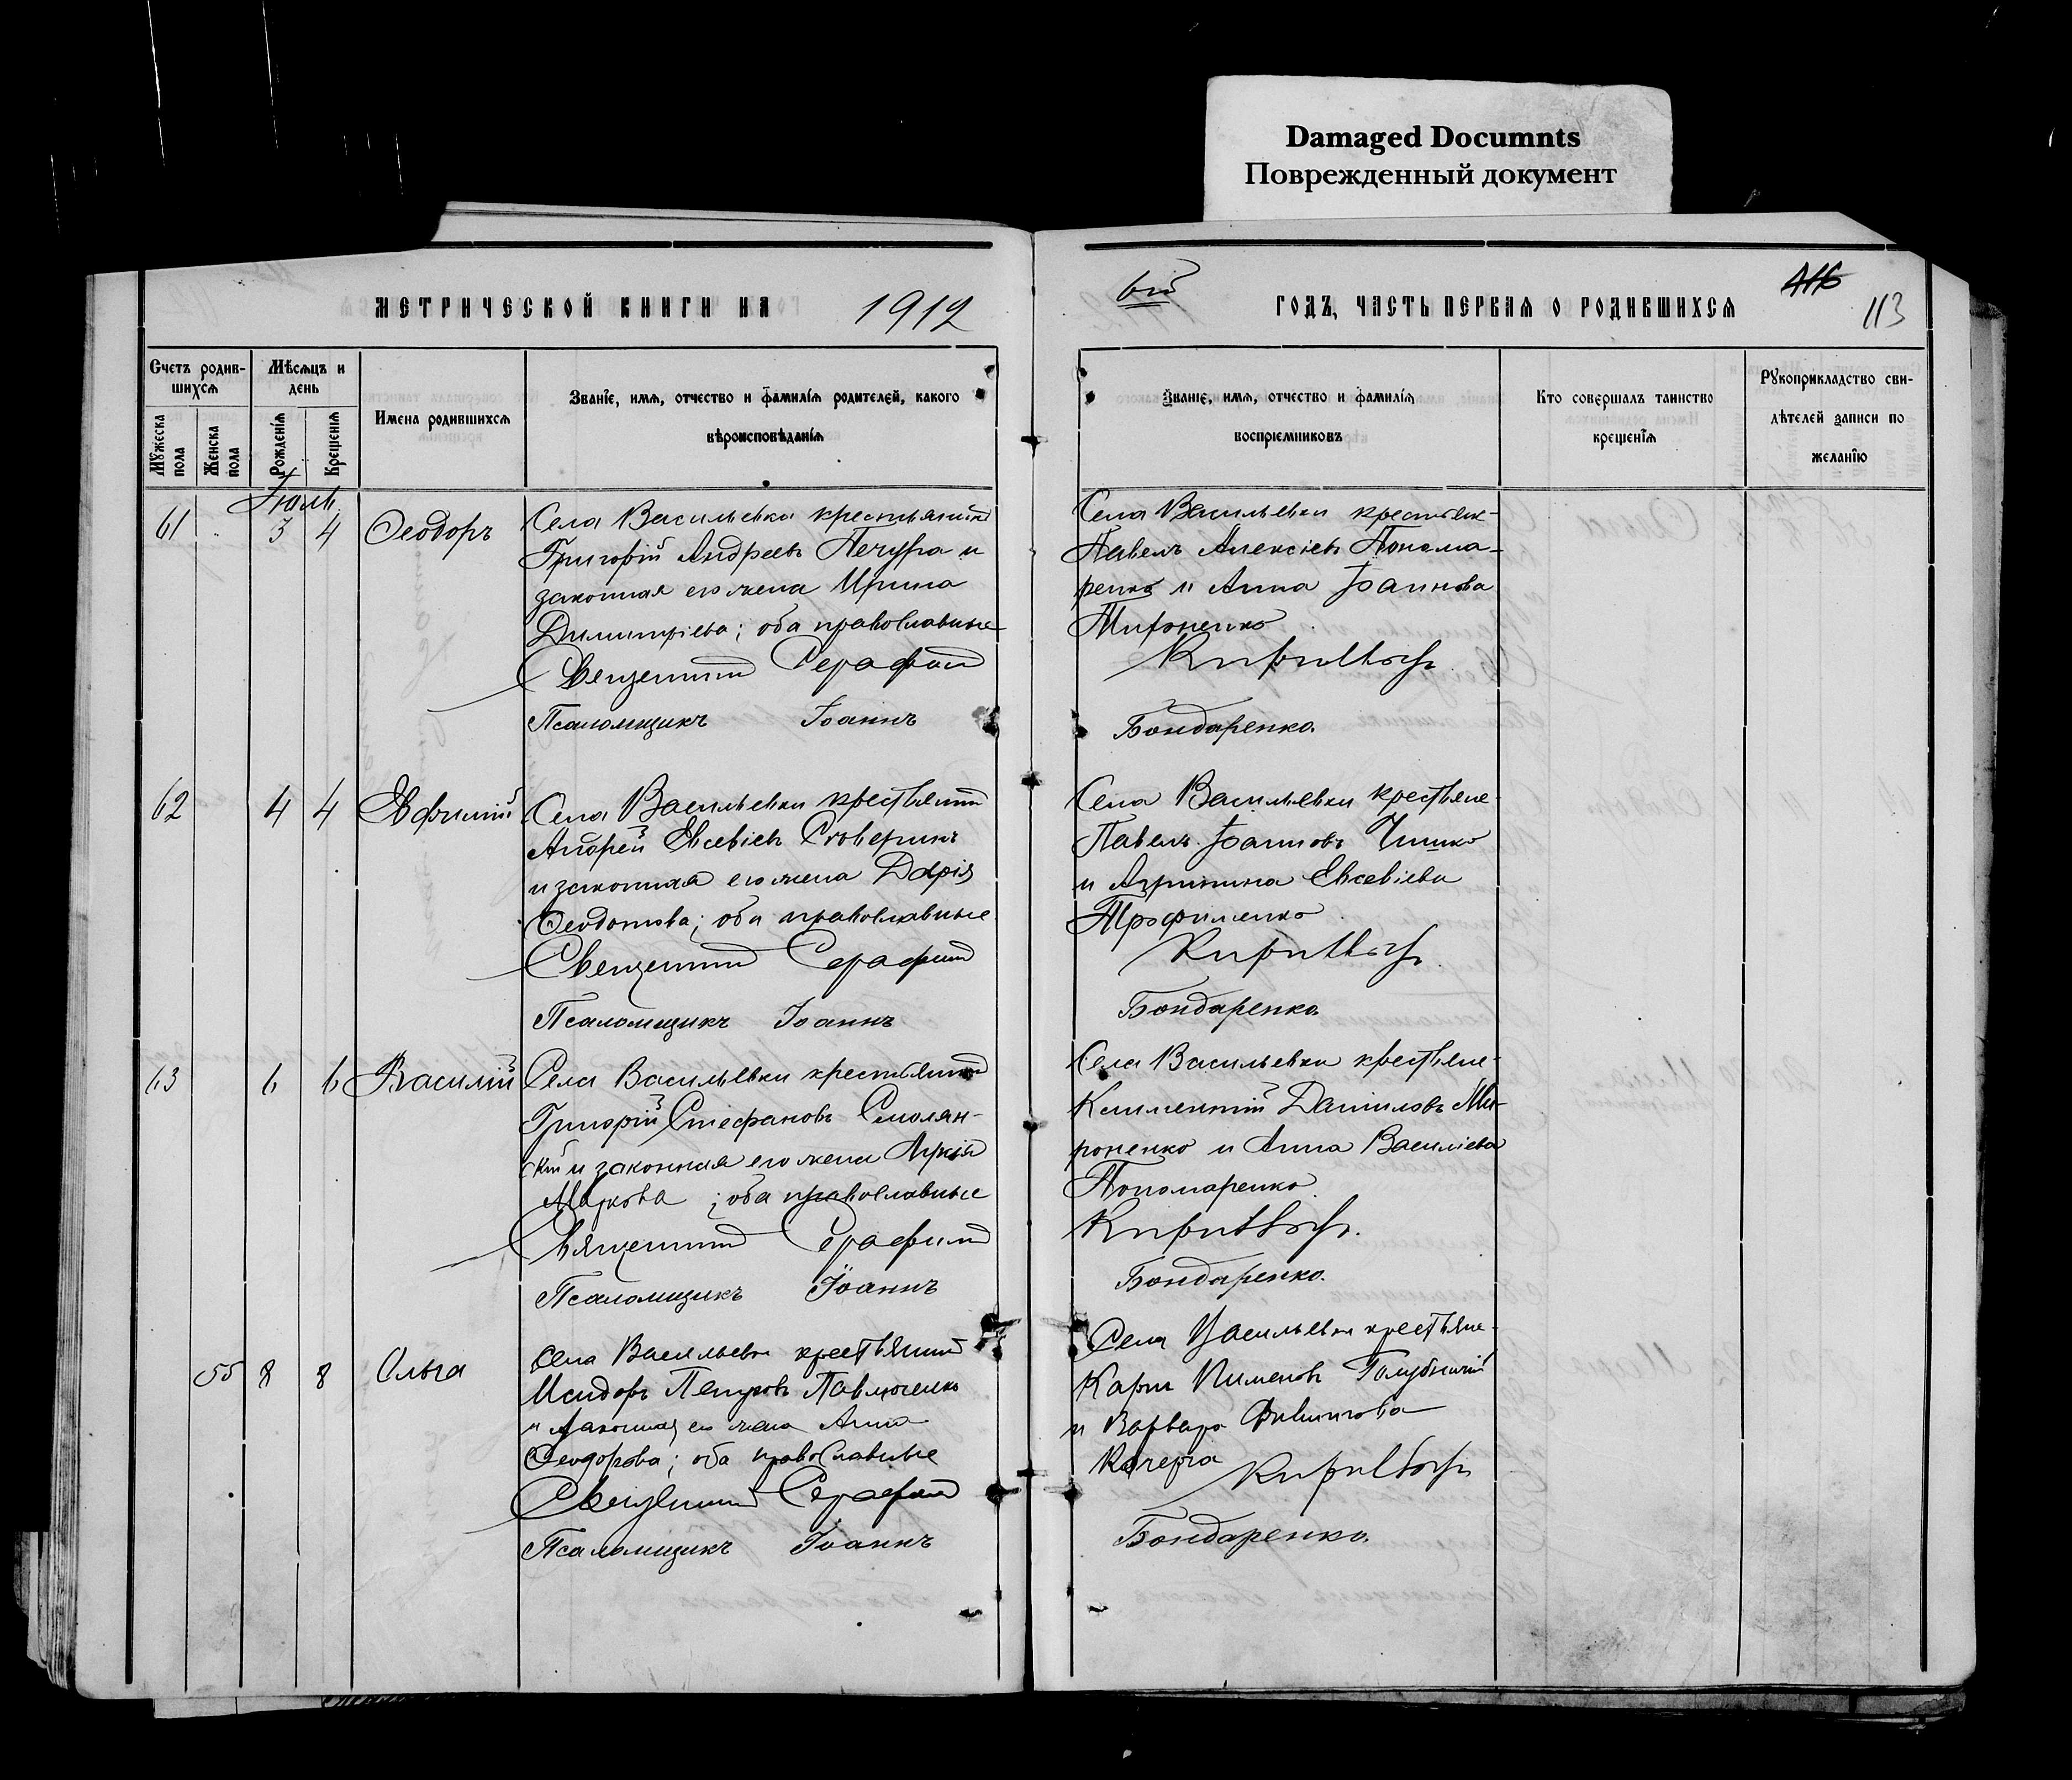 Damaged Documnts
Поврежденный документ
МЕТРИЧЕСКОЙ КНИГИ НА 1912
Счетъ родив-
шихся
Мѣсяцъ и
день
Мужеска
пола
Женска
пола
Рожденія
Крещенія
Имена родившихся
Званіе, имя, отчество и фамилія родителей, какого
вѣроисповѣданія
Іюль
61 3 4 Ѳеодоръ
Села Васильевки крестьянинъ
Григорій Андреевъ Печура и
законная его жена Ирина
Димитріева; оба православные
Священникъ Серафимъ
Псаломщикъ Іоаннъ
62 4 4 Евфимій
Села Васильевки крестьянинъ
Андрей Евсевіевъ Сковерикъ
и законная его жена Дарія
Ѳеодотова; оба православные
Священникъ Серафимъ
Псаломщикъ Іоаннъ
63 6 6 Василій
Села Васильевки крестьянинъ
Григорій Стефановъ Смолян-
кій и законная его жена
Маркова; оба православные
Священникъ Серафимъ
Псаломщикъ Іоаннъ
55 8 8 Ольга
Села Васильевки крестьянинъ
Исидоръ Петровъ Павлюченко
и законная его жена Анна
Ѳеодорова; оба православные
Священникъ Серафимъ
Псаломщикъ Іоаннъ
6й
ГОДЪ, ЧАСТЬ ПЕРВАЯ О РОДИВШИХСЯ
116
113
Званіе, имя, отчество и фамилія
воспріемниковъ
Кто совершалъ таинство
крещенія
Рукоприкладство сви-
дѣтелей записи по
желанію
Села Васильевки крестьяне-
Павелъ Алексіевъ Понома-
ренко и Анна Іоаннова
Мироненко
Бондаренко.
Села Васильевки крестьяне-
Павелъ Іоанновъ Чишко
и Агрипина Евсевіева
Трофименко
Бондаренко.
Села Васильевки крестьяне-
Климентій Даниловъ Ми-
роненко и Анна Василіева
Пономаренко
Бондаренко.
Села Васильевки крестьяне-
Карпъ Пименовъ Голубничій
и Варвара Филиппова
Кочерга
Бондаренко.